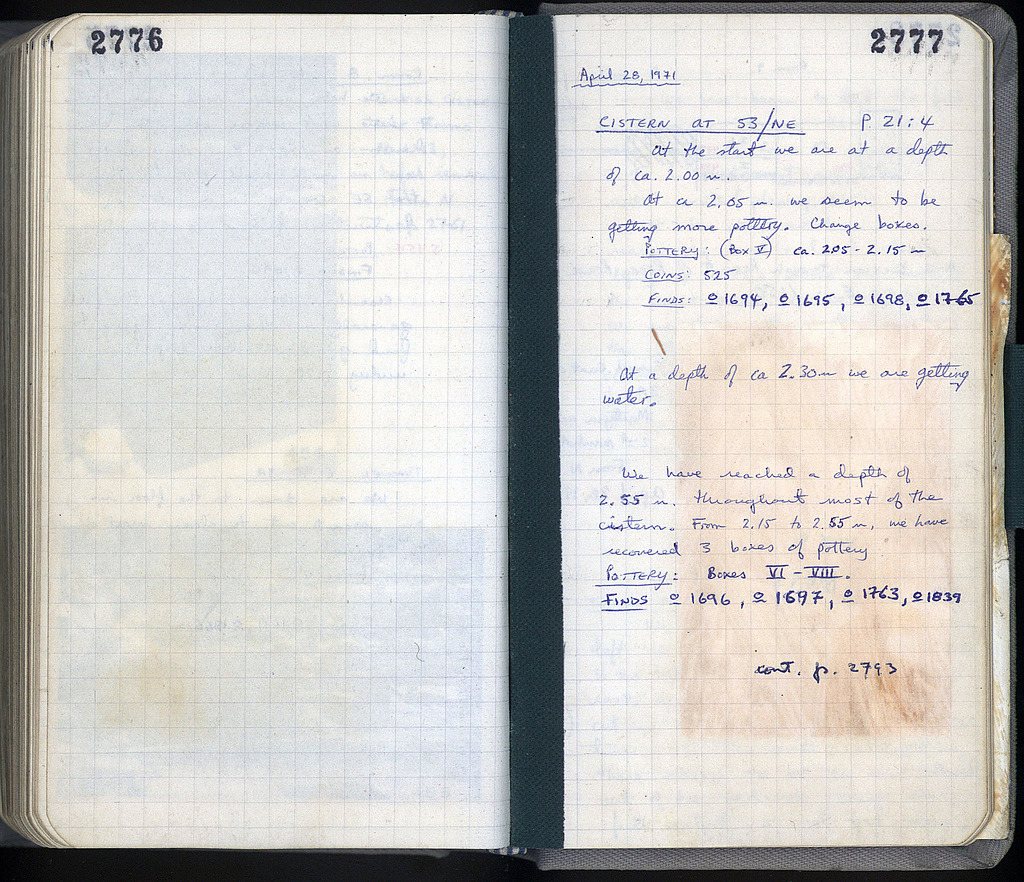 2776
2777
April 28, 1971
CISTERN AT 53/NE P. 21:4
At the start we are at a depth
of ca. 2.00 m.
At ca 2.05 m. we seem to be
getting more pottery. Change boxes.
POTTERY: (Box V) ca. 2.05 - 2.15 m
COINS: 525
FINDS: o 1694, o 1695, o 1698, o 1765
At a depth of ca 2.30 m we are getting
water.
We have reached a depth of
2.55 m. throughout most of the
cistern. From 2.15 to 2.55 m, we have
recovered 3 boxes of pottery
POTTERY: Boxes VI - VIII.
FINDS o 1696, o 1697, o 1763, o 1839
cont. p. 2793